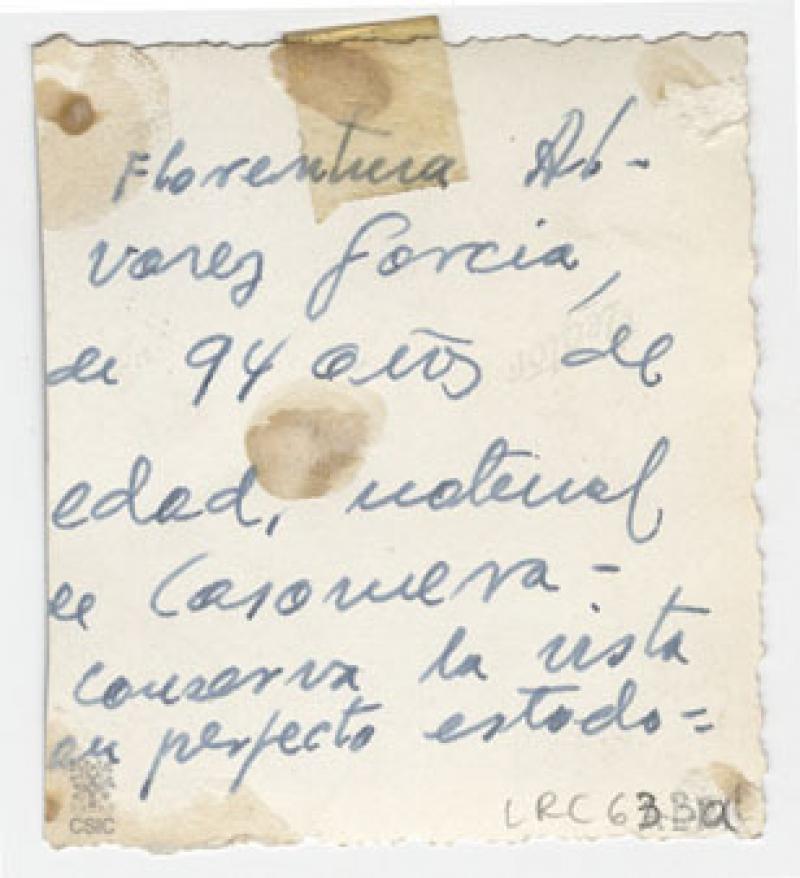 Florentina Al-
varez García,
de 94 años de
edad, natural
de Casomera -
conserva la vista
en perfecto estado =
CSIC
LRC 633a